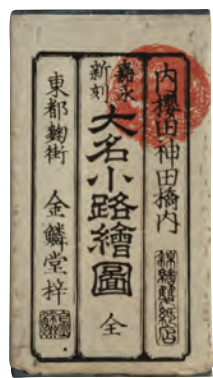 内櫻田神田橋内
嘉永
新刻
大名小路繪圖 全
東都麹街 金鱗堂梓